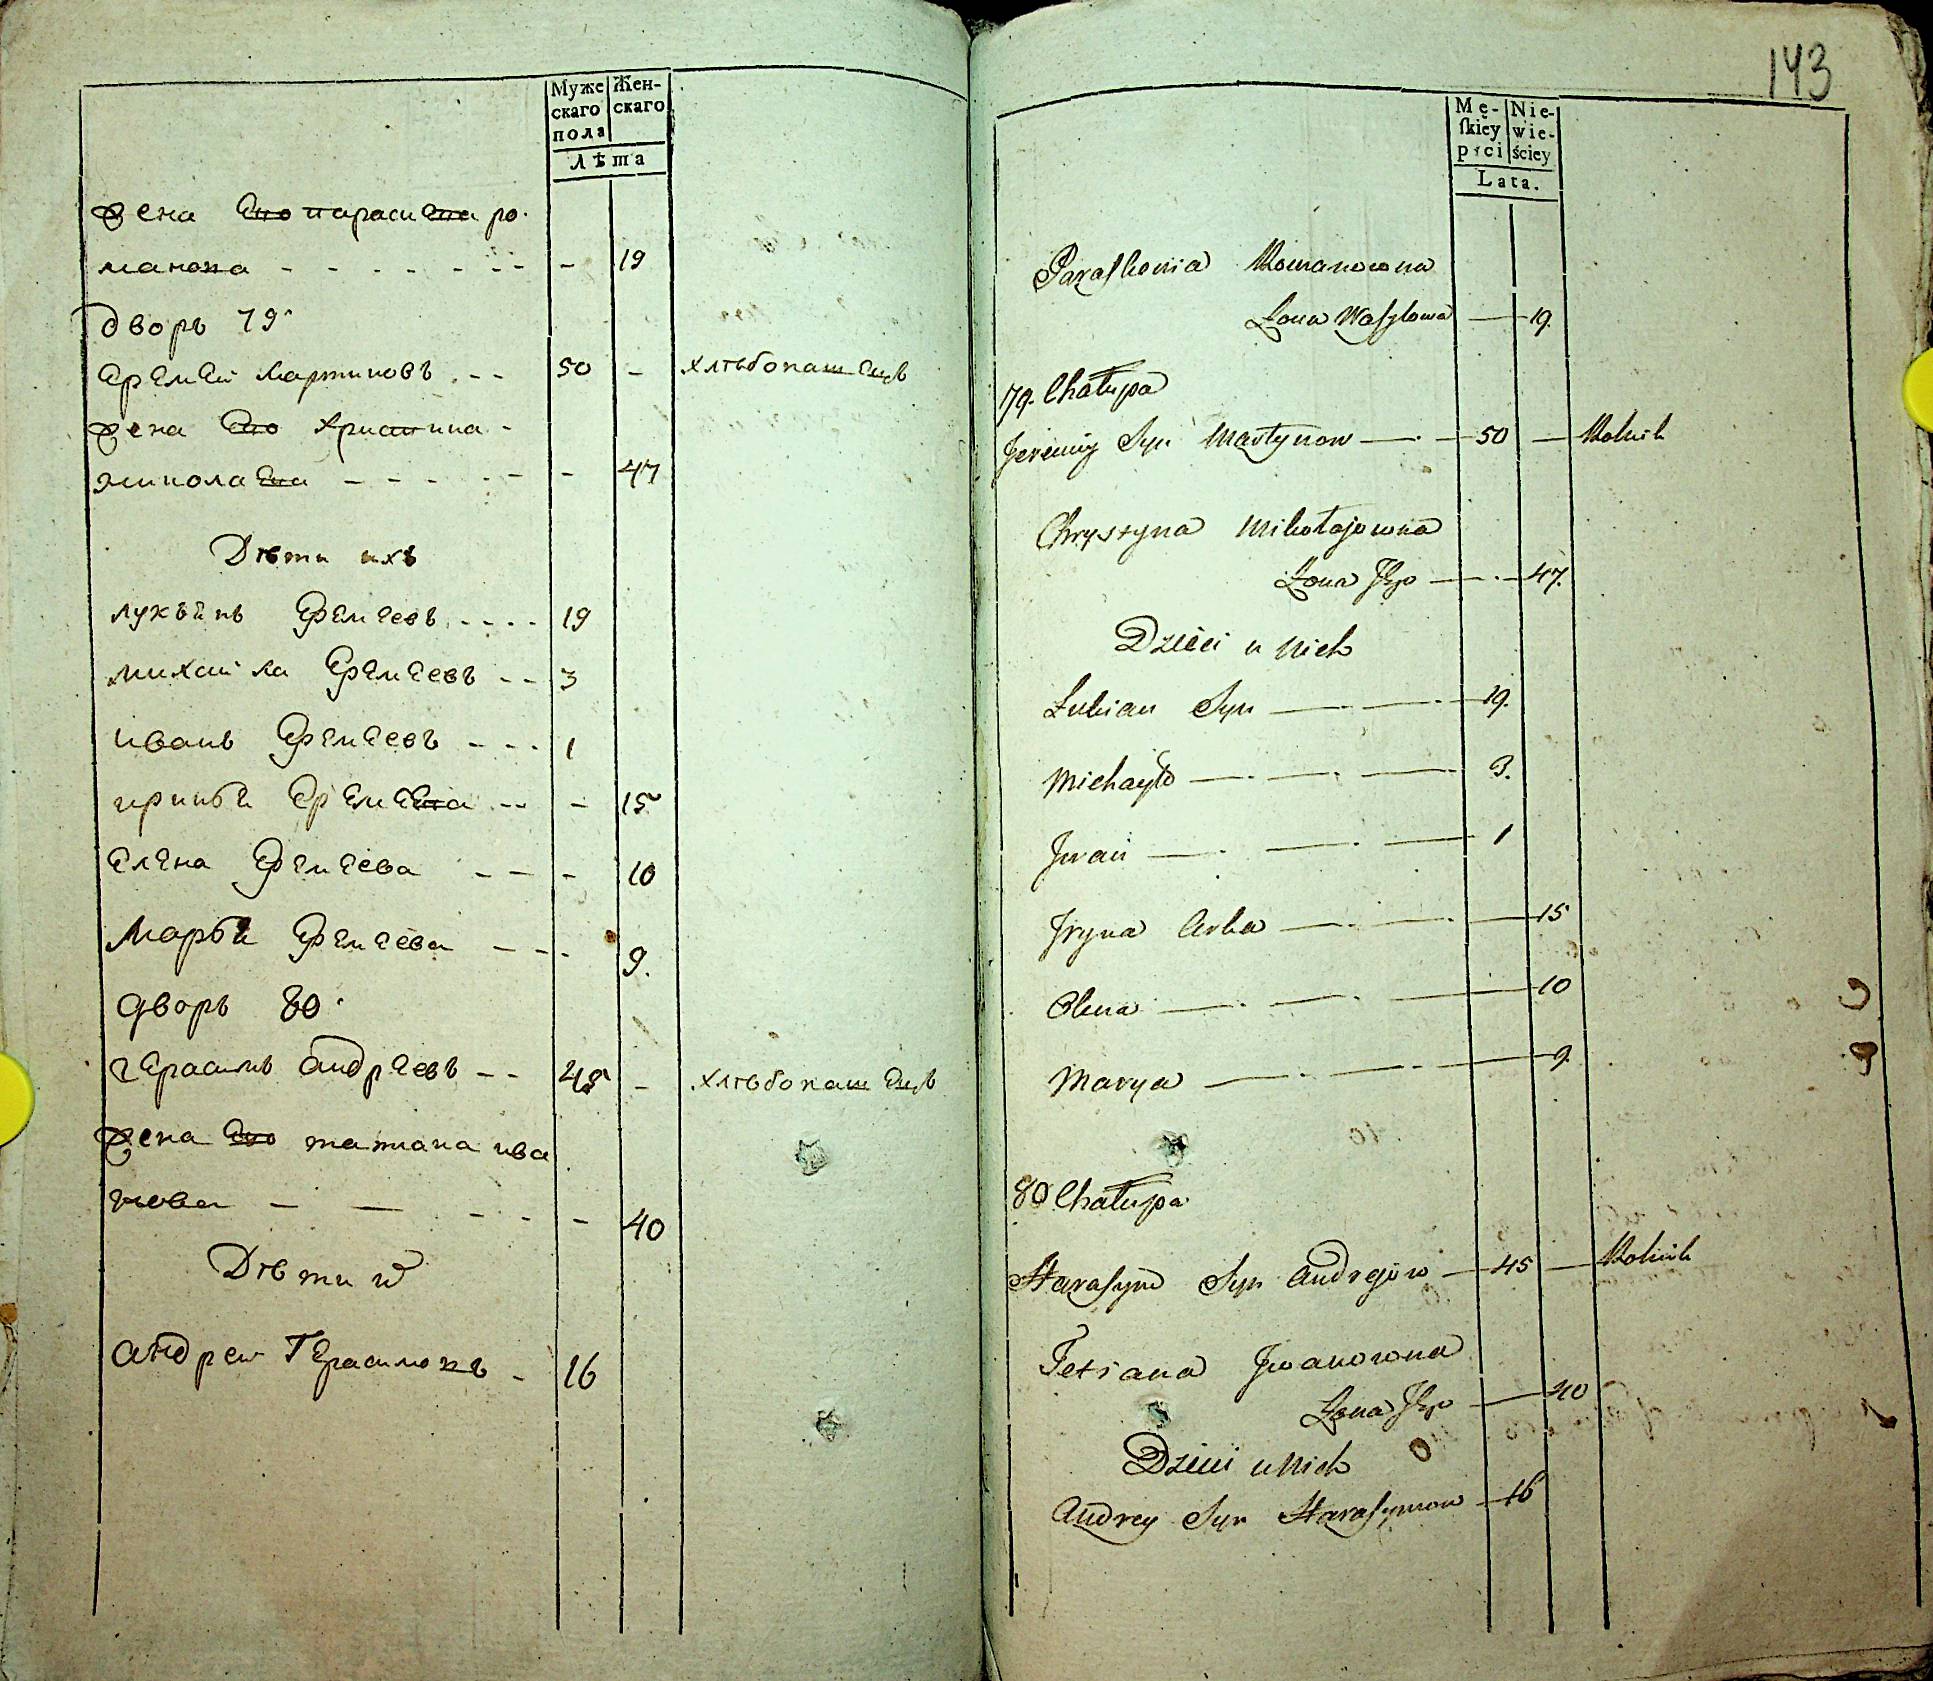 Муже
скаго
пола
Жен-
скаго
Лѣта
жена Его параскева ро-
манова - - - - - - - 19
дворъ 79
Еремей мартиновъ - - 50 - хлѣбопашецъ
жена Его христина -
николаева - - - - - - 47
Дѣти ихъ
лукъянъ Еремеевъ - - - - 19
михайла Еремеевъ - - 3
иванъ Еремеевъ - - - 1
иринья Еремеева - - - 15
Елена Еремеева - - - 10
Марья Еремеева - - - 9.
дворъ 80
герасимъ андреевъ - - 45 - хлѣбопашецъ
жена Его татиана ива
нова - - - - - 40
Дѣти их
андреи Герасимовъ - 16
143
Mę-
skiey
płci
Nie-
wie-
ściey
Lata.
Paraskowia Romanowna
Żona Wasylowa — 19.
79. Chałupa
Jeremiy Syn Martynow — 50 — Rolnik
Chrystyna Mikołajowna
Żona Jego — 47.
Dzieci u Nich
Łukian Syn — 19.
Michayło — 3.
Jwan — 1
Jryna Córka — 15
Olena — 10
Marya — 9.
80 Chałupa
Harasym Syn Andrejow — 45 — Rolnik
Tetiana Jwanowna
Żona Jego — 40
Dzieci u Nich
Andrey Syn Harasymow — 16